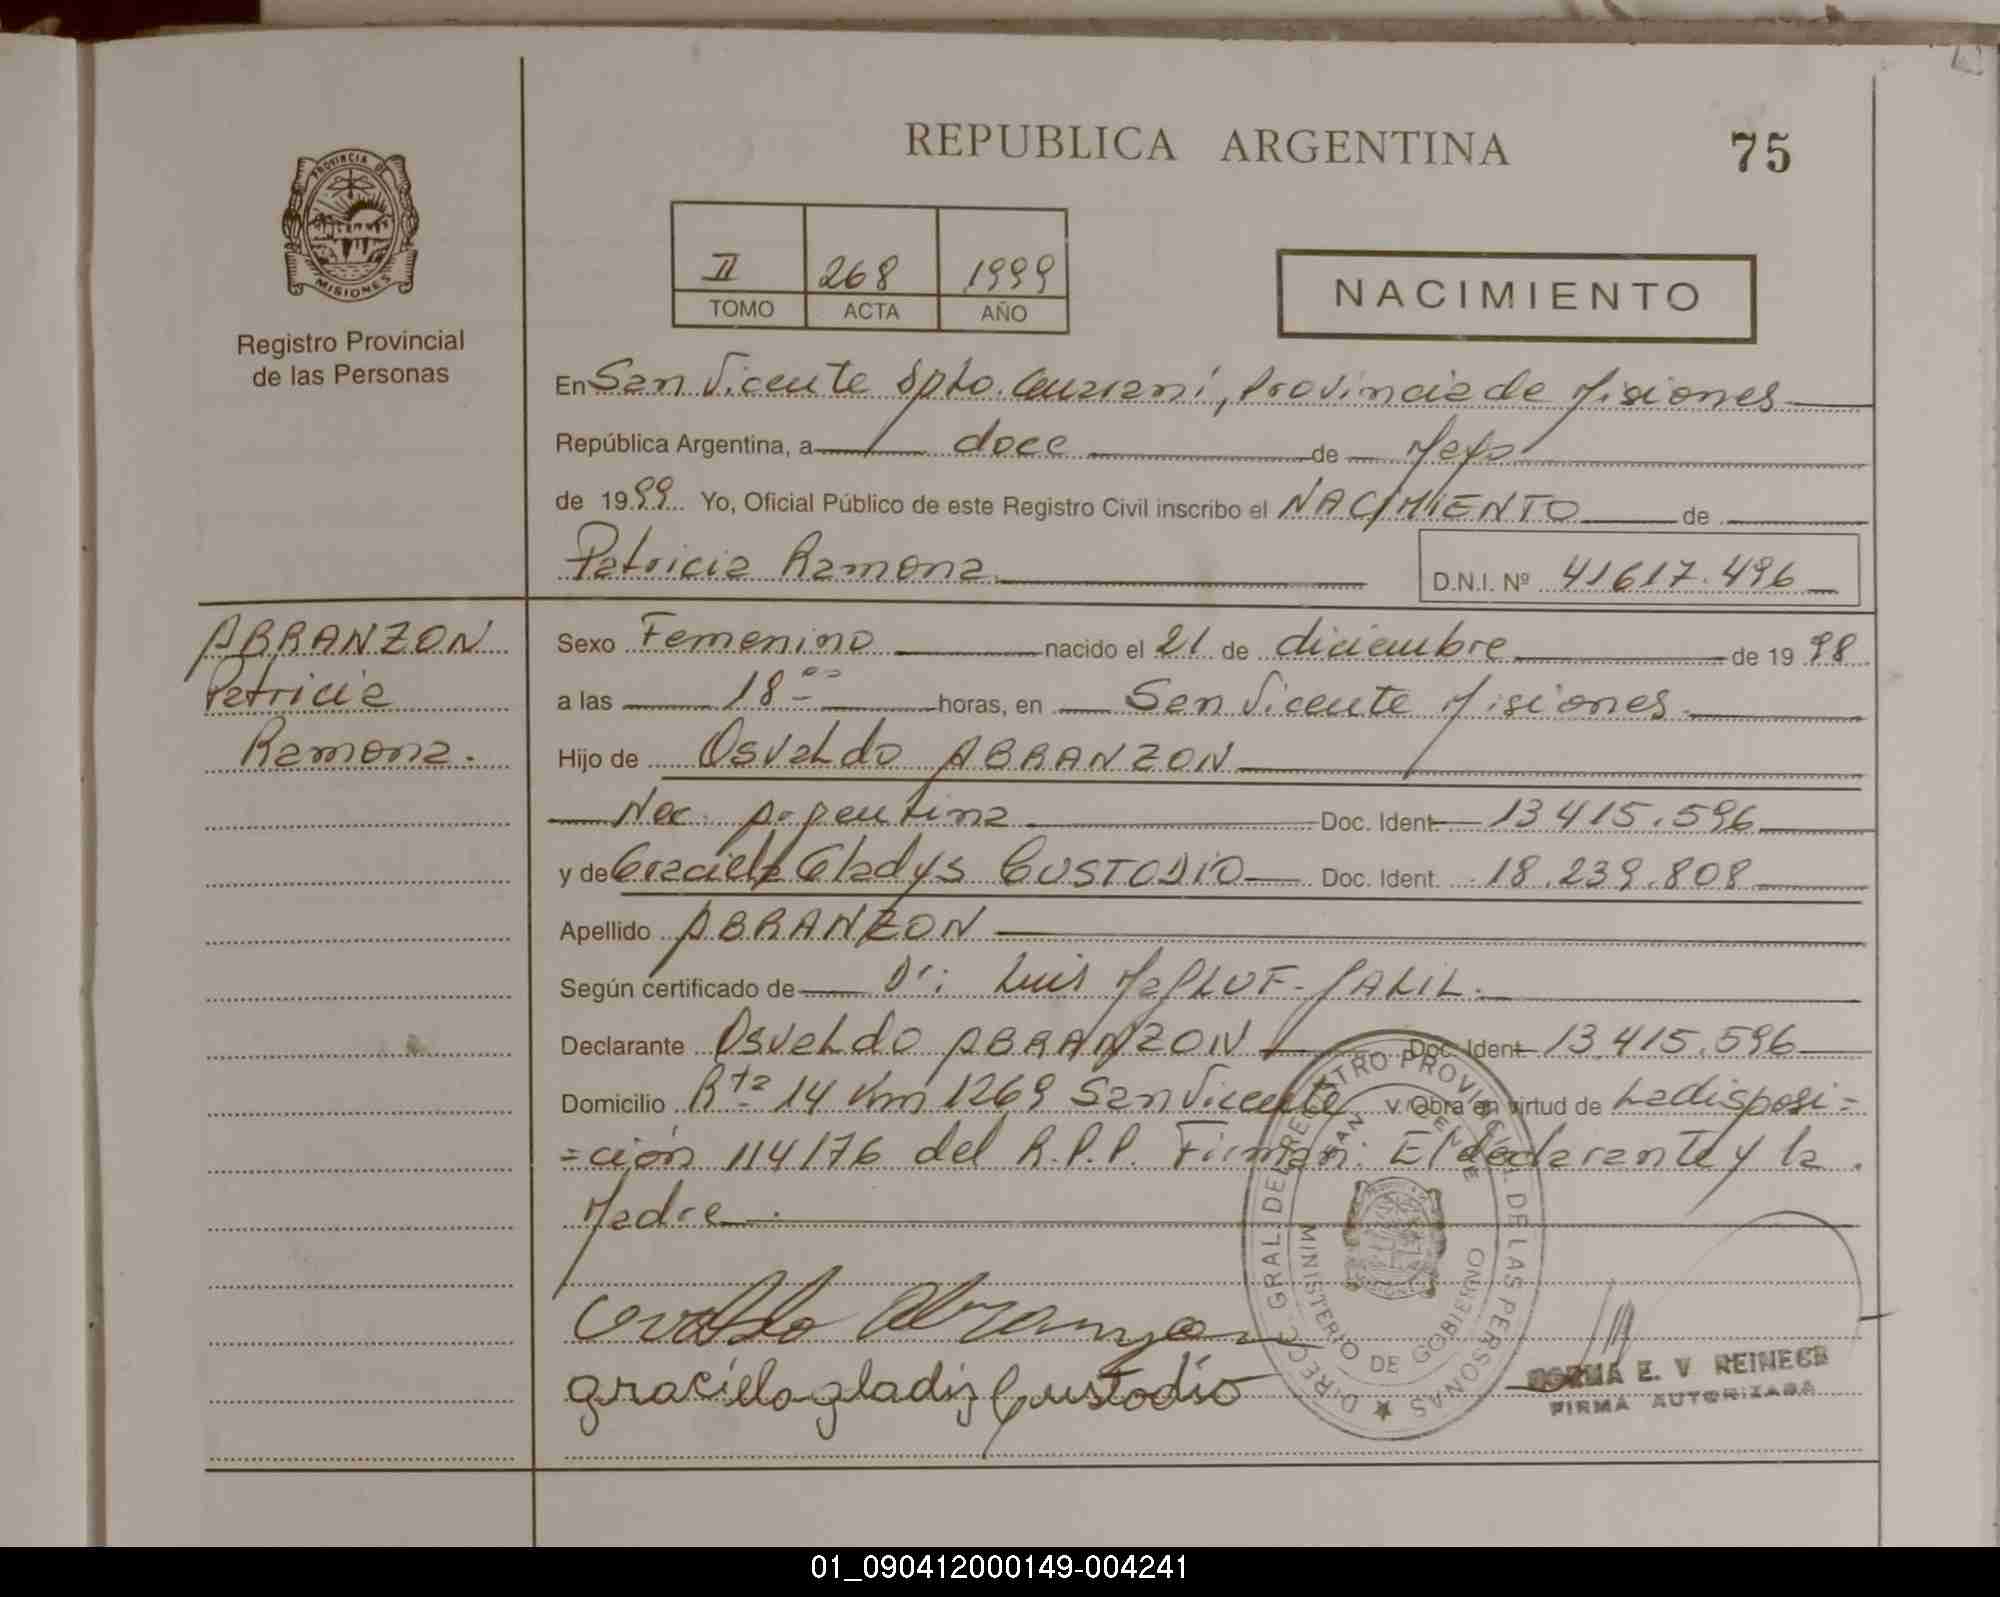 REPUBLICA ARGENTINA
75
PROVINCIA DE
MISIONES
Registro Provincial
de las Personas
II 268 1999
TOMO ACTA AÑO
NACIMIENTO
En San Vicente Dpto. Guaraní, Provincia de Misiones
República Argentina, a doce de Mayo
de 1999 Yo, Oficial Público de este Registro Civil inscribo el NACIMIENTO de
Patricia Ramona D.N.I. Nº 41617.496
ABRANZON
Patricia
Ramona.
Sexo Femenino nacido el 21 de diciembre de 1998
a las 18 00 horas, en San Vicente Misiones
Hijo de Osvaldo ABRANZON
Nac. Argentina Doc. Ident. 13.415.596
y de Graciela Gladys CUSTODIO Doc. Ident. 18.239.808
Apellido ABRANZON
Según certificado de Dr: Luis JALIL.
Declarante Osvaldo ABRANZON Doc. Ident. 13.415.596
Domicilio Rta 14 Km 1269 San Vicente Obra en virtud de La disposi=
=ción 114/76 del R.P.P. Firman: El declarante y la
Madre.
Osvaldo Abranzon
graciela gladiz Custodio
DIRECC. GRAL DEL REGISTRO PROVINCIAL DE LAS PERSONAS
SAN VICENTE
MINISTERIO DE GOBIERNO
NORMA E. V REINECK
FIRMA AUTORIZADA
01_090412000149-004241